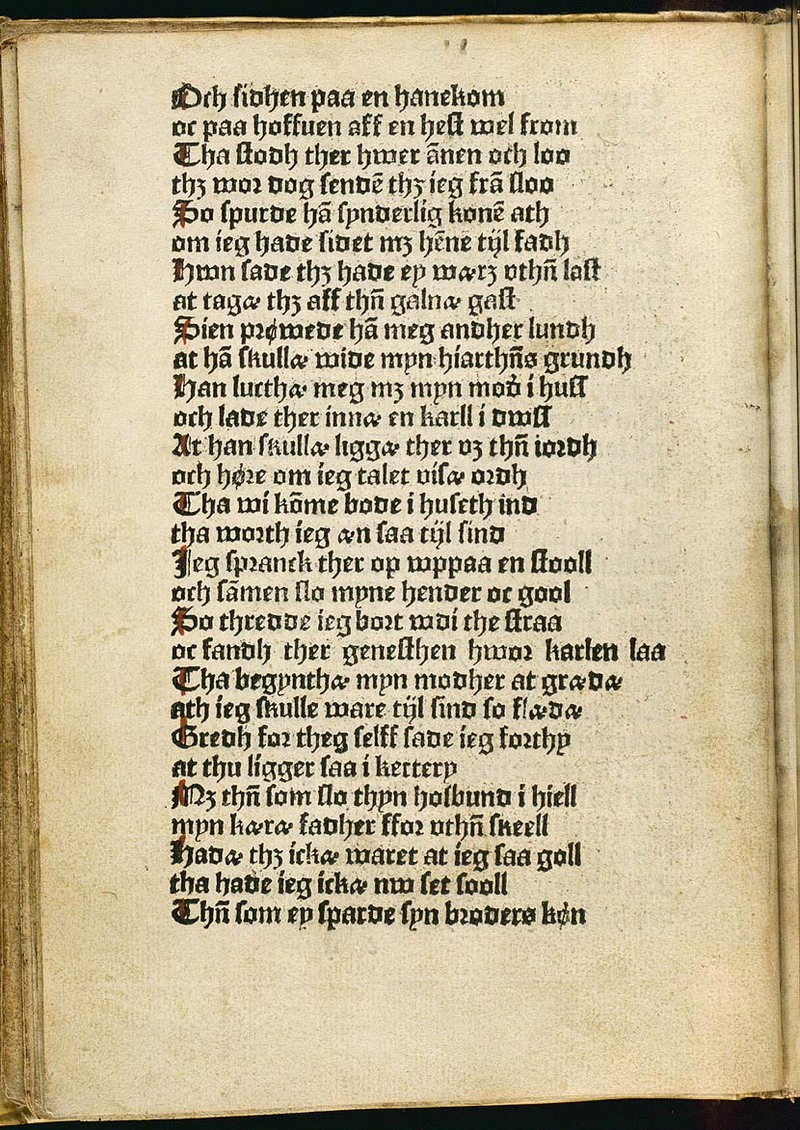 Och sidhen paa en hanekom
oc paa hoffuen aff en hest wel from
Tha stodh ther hwer ãnen och loo
thꝫ wor dog sendẽ thꝫ ieg frã sloo
So spurde hã synderlig konẽ ath
om ieg hade sidet mꝫ hẽne tijl fadh
Hwn sade thꝫ hade ey wærꝫ vthñ last
at tagæ thꝫ aff thñ galnæ gast
Sien prøwede hã meg andher lundh
at hã skullæ wide myn hiarthñs grundh
Han lucthæ meg mꝫ myn mod̉ i hust
och lade ther innæ en karll i dwst
At han skullæ liggæ ther vꝫ thñ iordh
och høre om ieg talet visæ ordh
Tha wi kõme bode i huseth ind
tha worth ieg æn saa tijl sind
Jeg spranck ther op wppaa en stooll
och sãmen slo myne hender oc gool
So thredde ieg bort wdi the straa
oc fandh ther genesthen hwor karlen laa
Tha begynthæ myn modher at grædæ
ath ieg skulle ware tijl sind so flædæ
Gredh for theg selff sade ieg forthy
at thu ligger saa i kettery
Mꝫ thñ som slo thyn hosbund i hiell
myn kæræ fadher ffor vthñ skeell
Hadæ thꝫ ickæ waret at ieg saa goll
tha hade ieg ickæ nw set sooll
Thñ som ey sparde syn broders køn